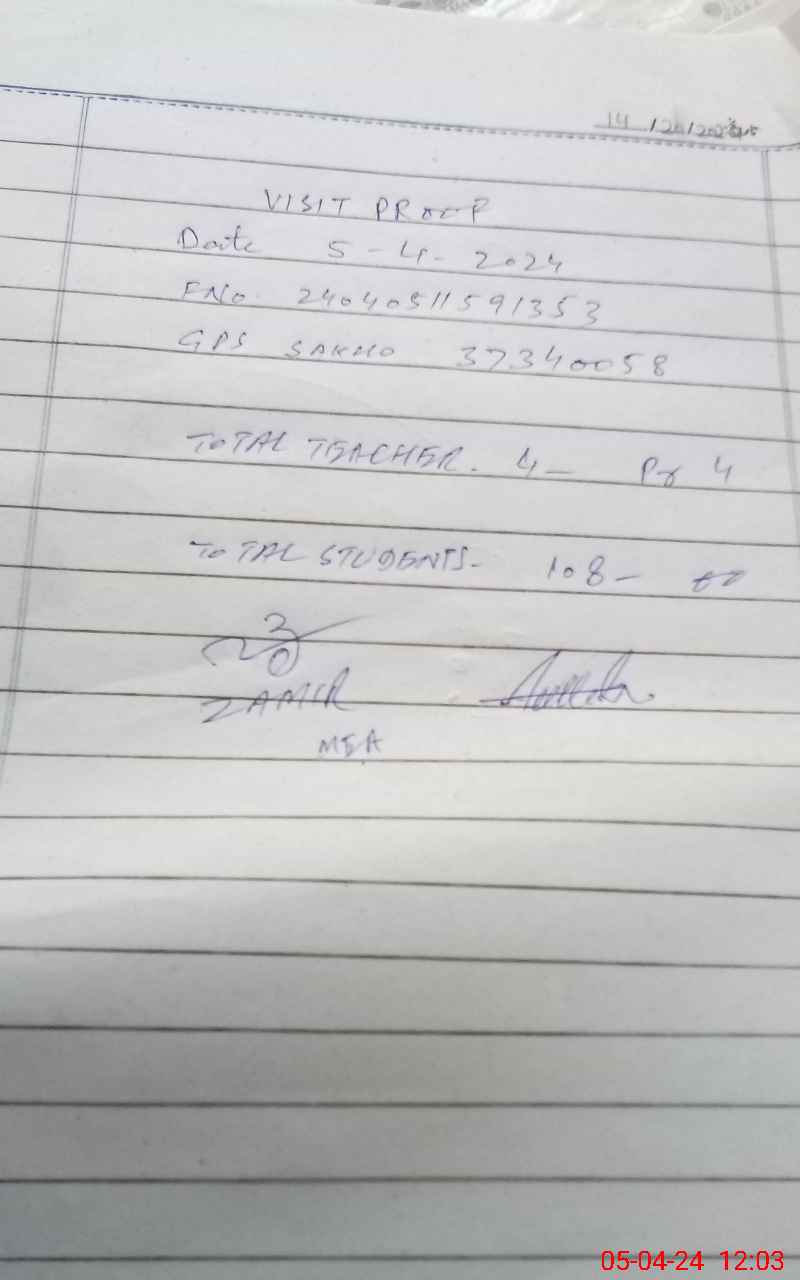 VISIT PROOF
Date 5-4-2024
FNo. 24040511591353
GPS SAKHO 37340058
TOTAL TEACHER. 4- Pr 4
TOTAL STUDENTS- 108-
ZAMIR
MEA
05-04-24 12:03